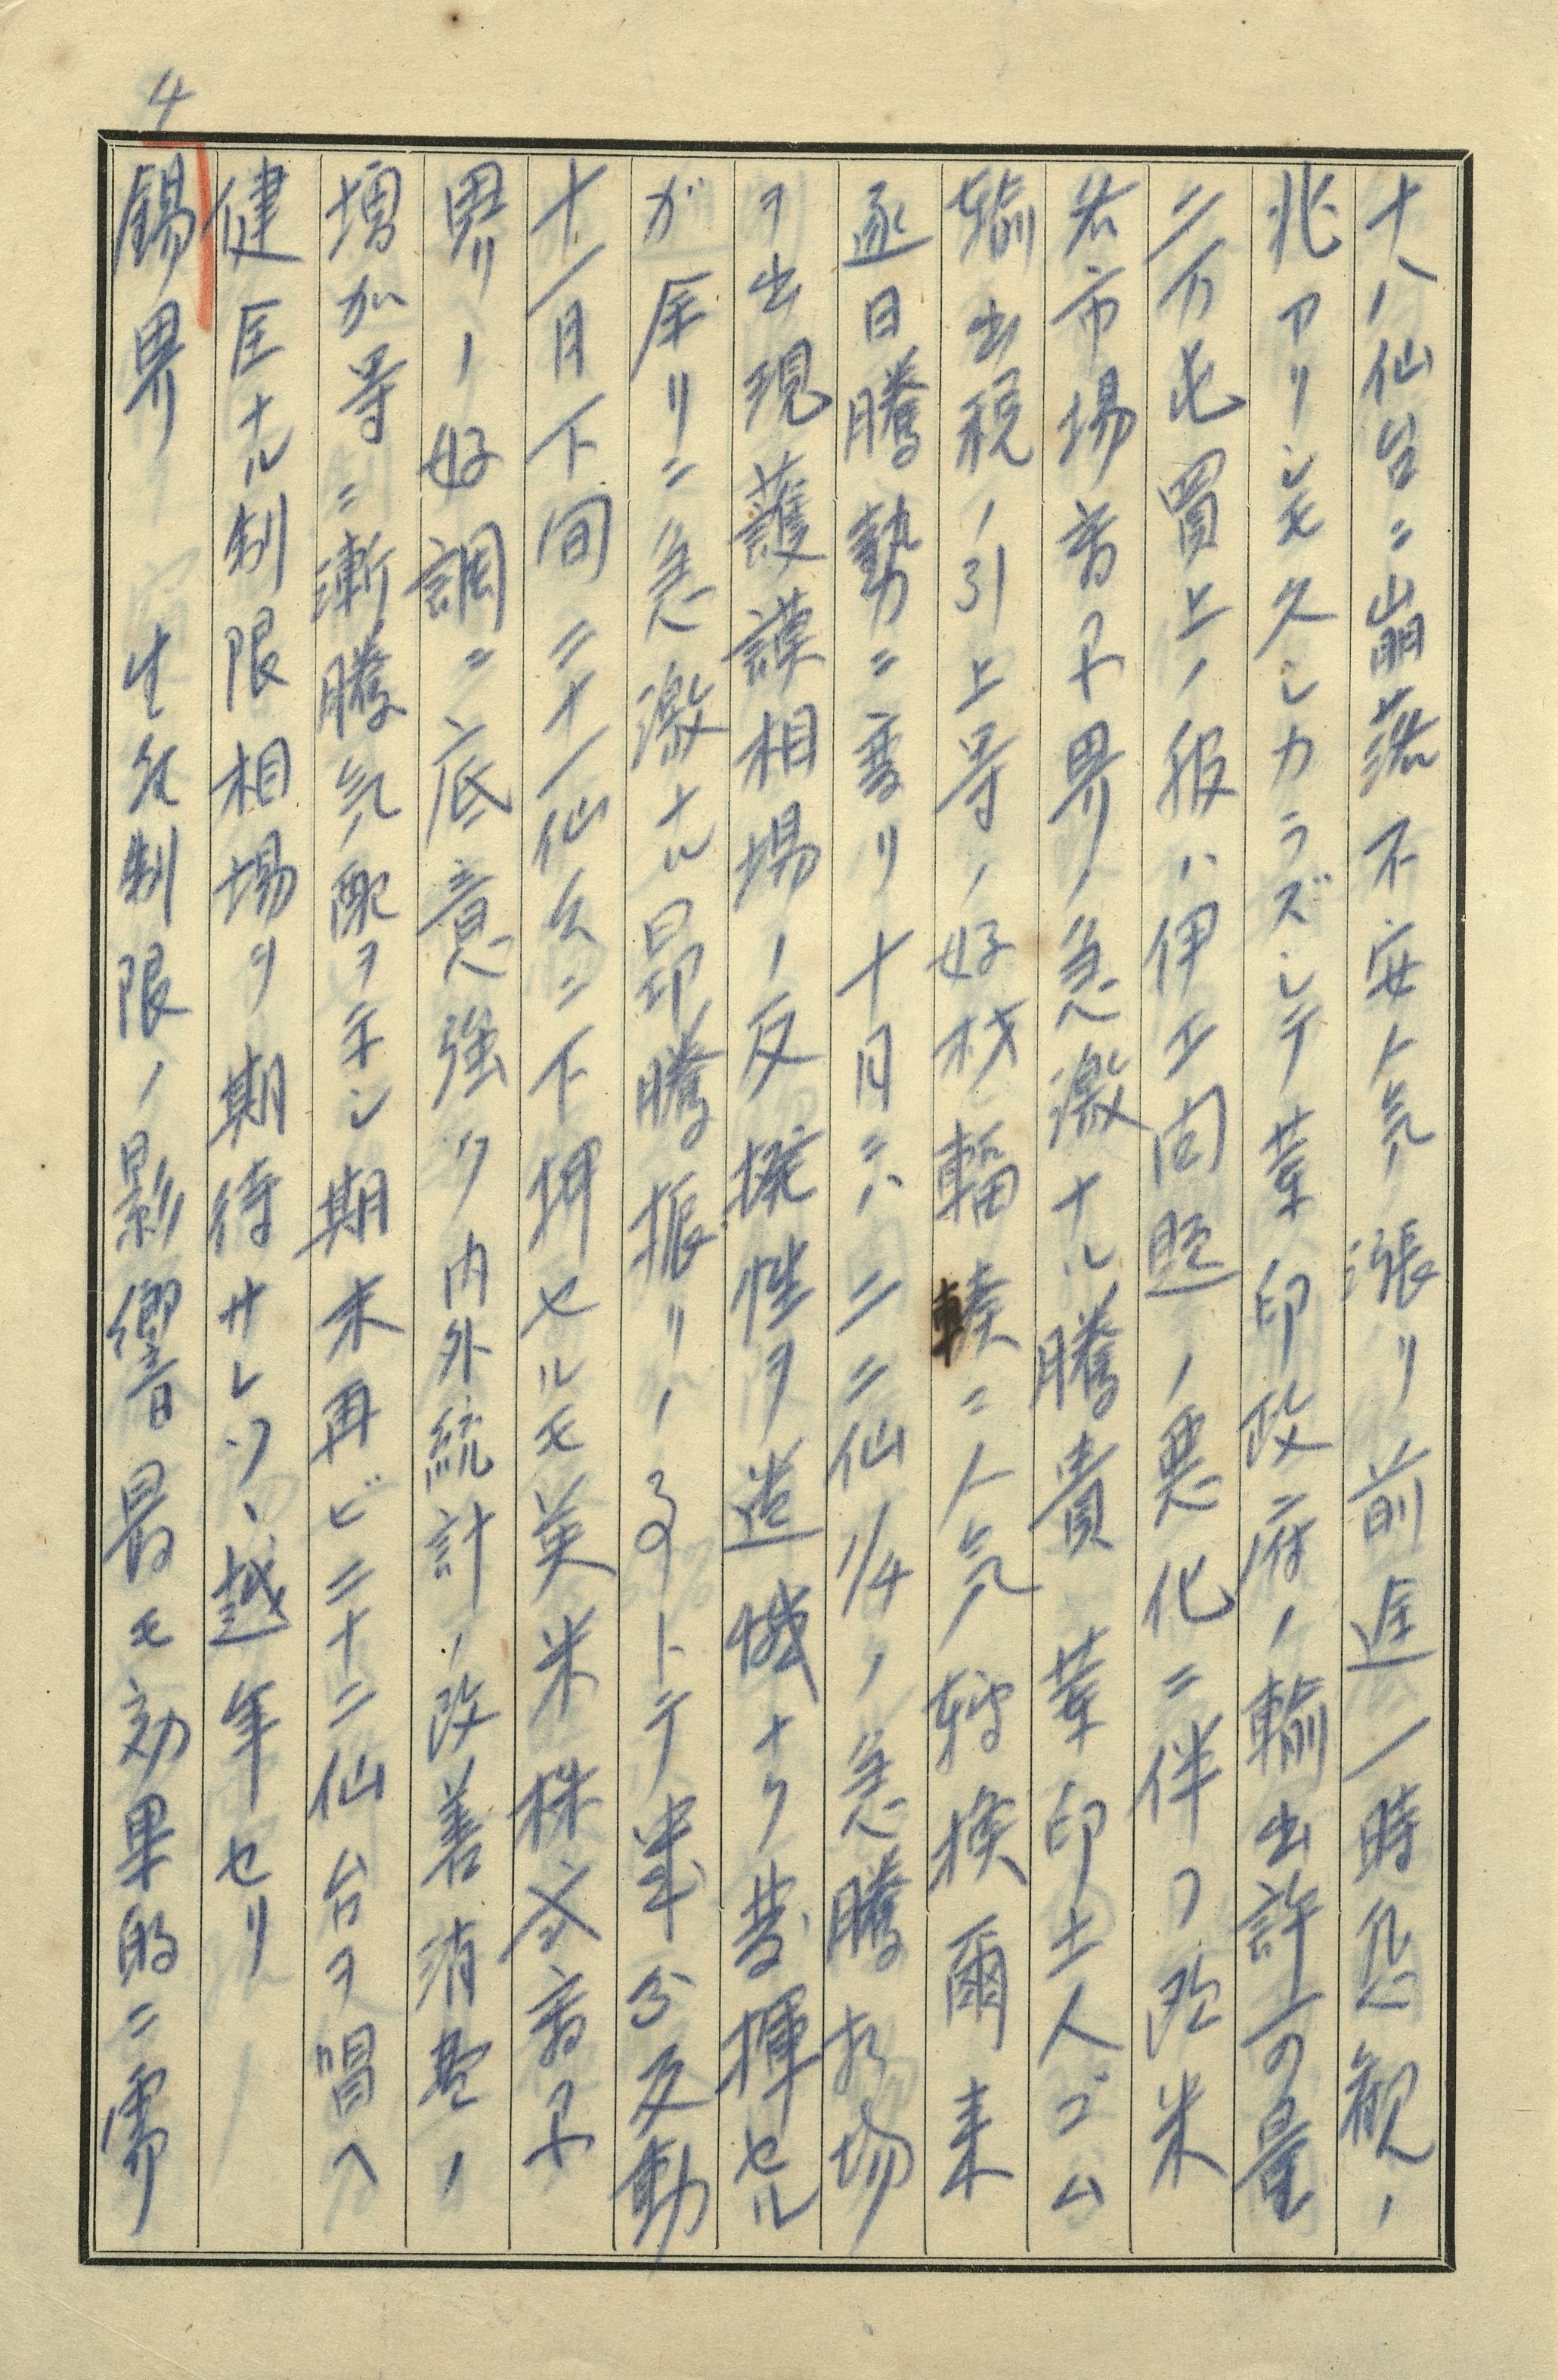 十八仙台ニ崩落不安人気漲リ前途一時悲観ノ
兆アリシモ久シカラズシテ蘭印政府ノ輸出許可量
二万屯買上ノ報ハ伊エ問題ノ悪化ニ伴フ欧米
各市場部界ノ急激ナル騰貴蘭印土人ゴム
輸出税ノ引上等ノ好材輻輳ニ人気転換爾来
逐日騰勢ニ変リ十月ニハ二二仙1/4ノ急騰相場
ヲ出現護謨相場ノ反撥性ヲ遺憾ナク発揮セル
ガ余リニ急激ナル昂騰振リノ事トテ幾分反動
十一月下旬二十一仙ニ下押セルモ英米株式
界ノ好調ニ底意強ク内外統計ノ改善消費ノ
増加等ニ漸騰気配ヲ示シ期末再ビ二十二仙台ヲ唱ヘ
健全ナル制限相場ヲ期待サレツヽ越年セリ
4
錫界　生産制限ノ影響最モ効果的ニ需